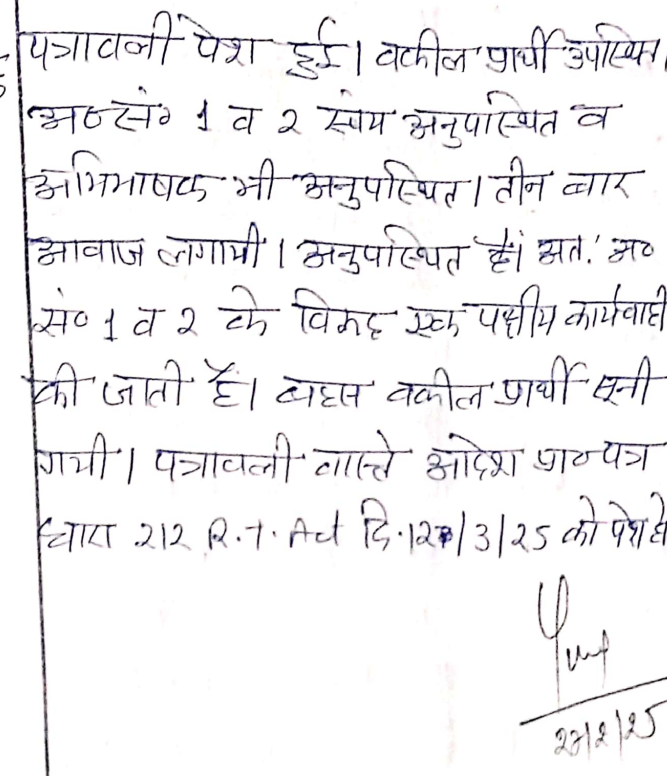 पत्रावली पेश हुई। वकील प्रार्थी उपस्थित।
अ०सं० 1 व 2 स्वंय अनुपस्थित व
अभिभाषक भी अनुपस्थित। तीन बार
आवाज लगायी। अनुपस्थित हैं। अत: अ०
सं० 1 व 2 के विरूद्ध एक पक्षीय कार्यवाही
की जाती है। बहस वकील प्रार्थी सूनी
गयी। पत्रावली वास्ते आदेश प्रा० पत्र
धारा 212 R.T. Act दि. /3/25 को पेश हो